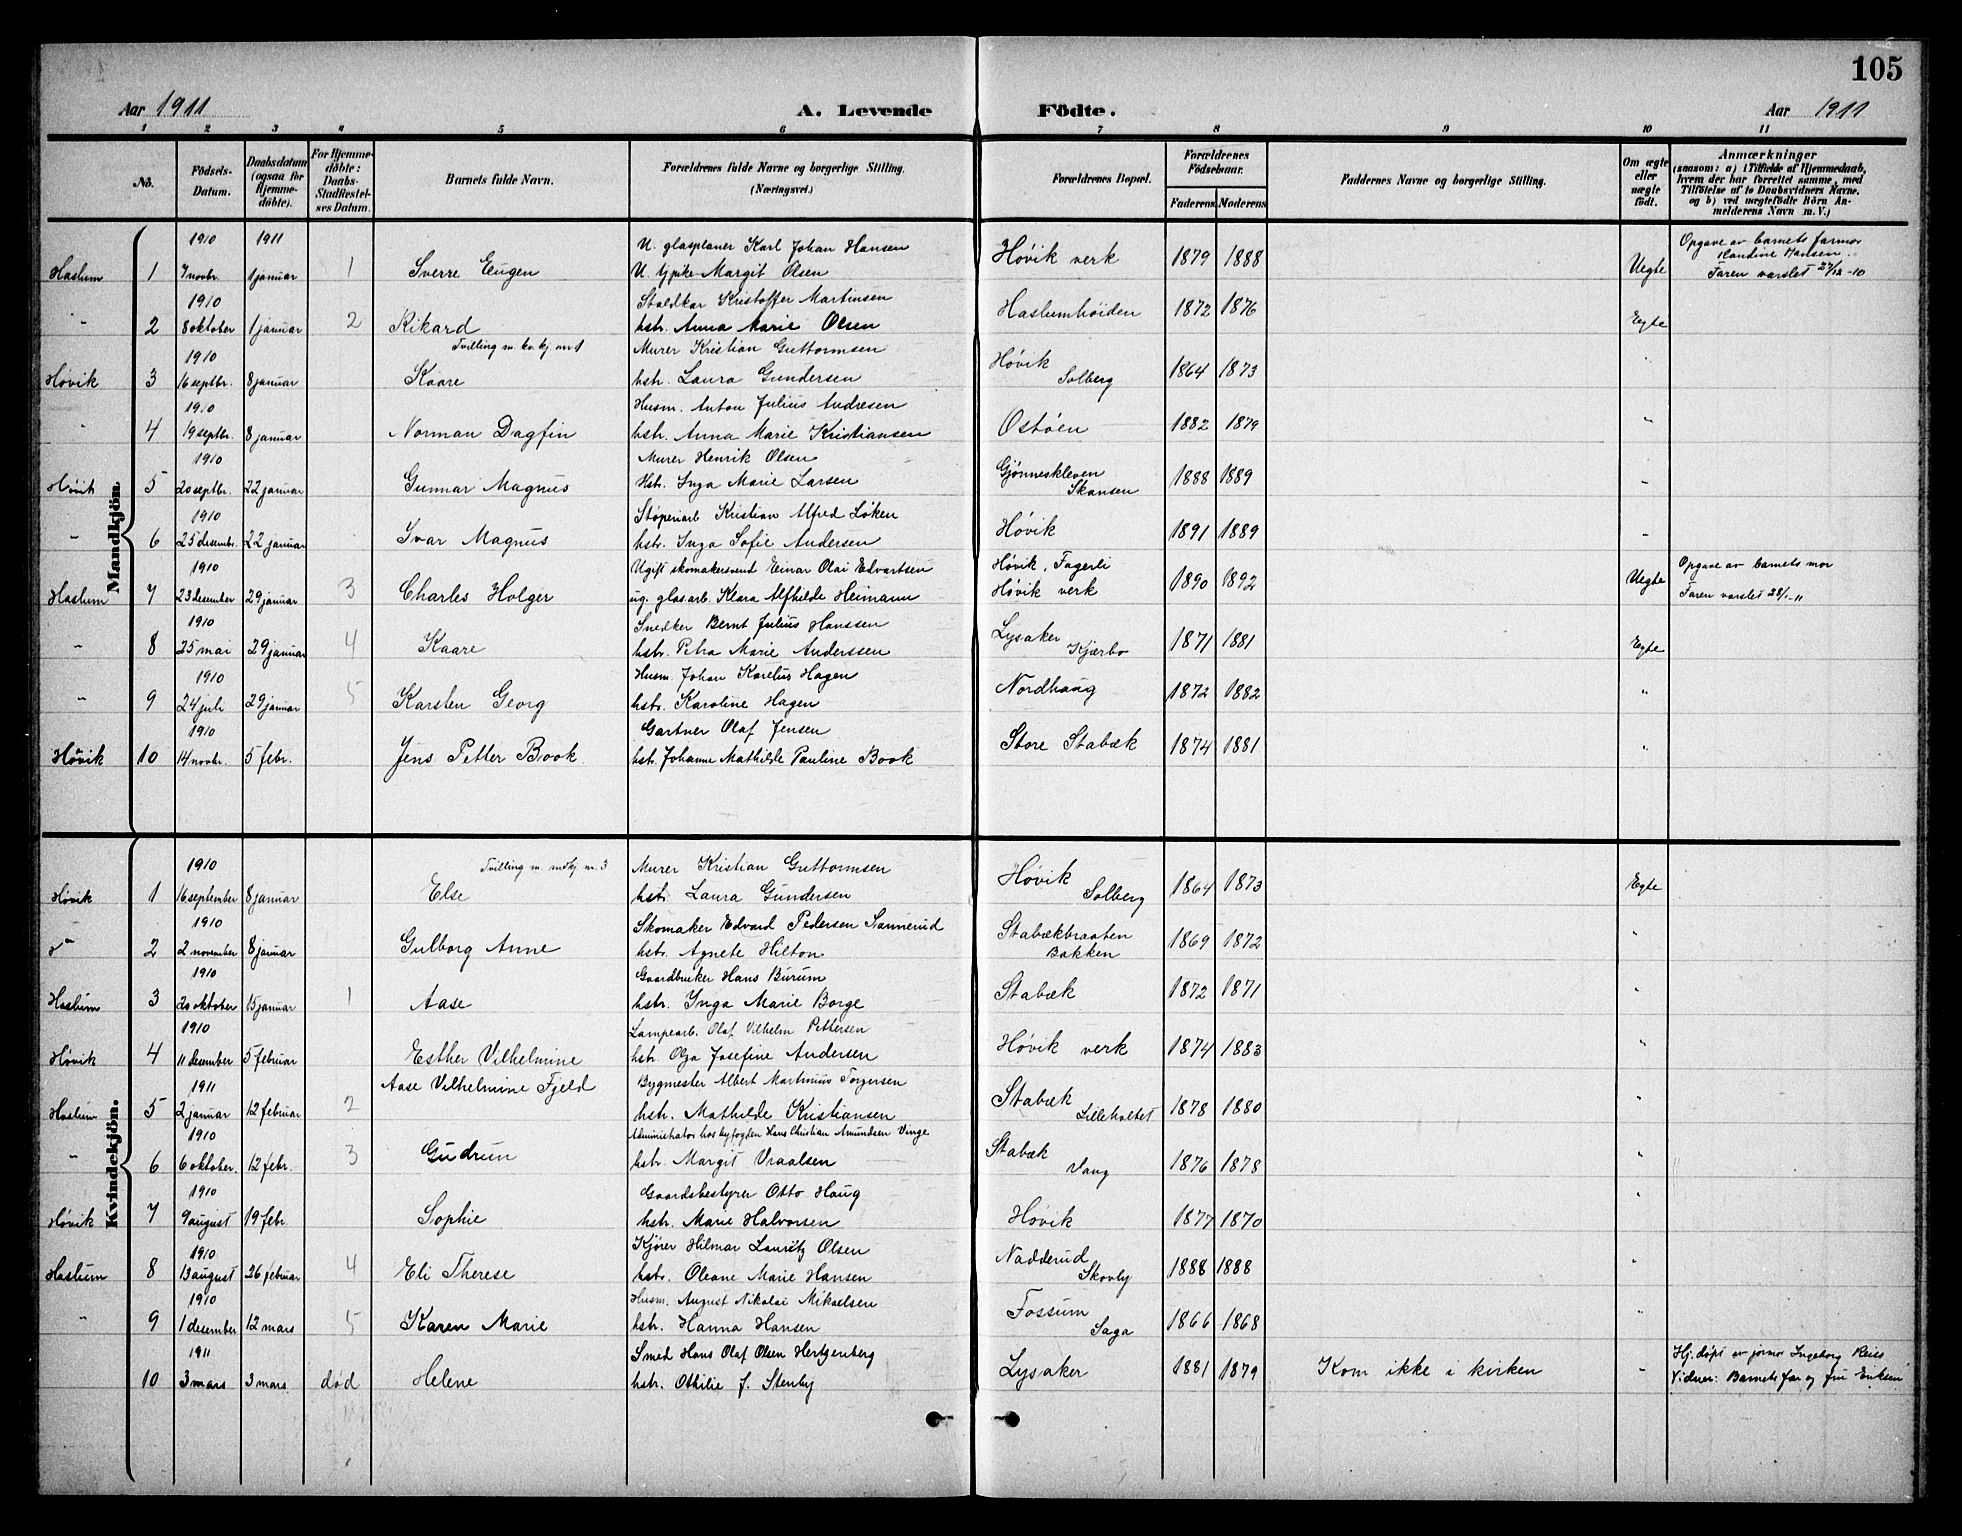 105
Aar 1911 A. Levende Födte. Aar 1911
1 2 3 4 5 6 7 8 9 10 11
No. Födsels-Datum. Daabsdatum (ogsaa for Hjemme-döbte). For Hjemme-döbte: Daabs-Stadfæstel-ses Datum. Barnets fulde Navn. Forældrenes fulde Navne og borgerlige Stilling. (Næringsvei.) Forældrenes Bopæl. Forældrenes Födselsaar. Faderens Moderens Faddernes Navne og borgerlige Stilling. Om ægte eller uægte födt. Anmærkninger (saasom: a) i Tilfælde af Hjemmedaab, hvem der har forrettet samme, med Tilföielse af to Daabsvidners Navne, og b) ved uægtefödte Börn An-melderens Navn m. V.)
Mandkjön.
1910 1911 U. glasplaner Karl Johan Hansen Opgave av barnets farmor
Haslum 1 7 novbr. 1 januar 1 Sverre Eugen U. pike Margit Olsen Høvik verk 1879 1888 Uegte Hansen. Faren varslet 27/12-10
1910 Staldkar Kristoffer Martinsen
" 2 8 oktober 1 januar 2 Rikard hstr. Anna Marie Olsen Haslumhøiden 1872 1876 Egte
1910 Tvilling m. kv. kj. nr 1 Murer Kristian Guttormsen
Høvik 3 16 septbr. 8 januar Kaare hstr. Laura Gundersen Høvik Solberg 1864 1873 "
1910 Husm. Anton Julius Andresen
" 4 19 septbr. 8 januar Norman Dagfin hstr. Anna Marie Kristiansen Ostøen 1882 1879 "
1910 Murer Henrik Olsen
Høvik 5 20 septbr. 22 januar Gunnar Magnus Hstr. Inga Marie Larsen Gjønneskleven Skansen 1888 1889 "
1910 Støperiarb Kristian Alfred Løken
" 6 25 desembr. 22 januar Ivar Magnus hstr. Inga Sofie Andersen Høvik 1891 1889 "
1910 Ugift skomakersvend Einar Olai Edvartsen Høvik, Fagerli Opgave av barnets mor
Haslum 7 23 desember 29 januar 3 Charles Holger ug. glasarb. Klara Alfhilde Heimann Høvik verk 1890 1892 Uegte Faren varslet 28/1-11
1910 Snedker Bernt Julius Hanssen
" 8 25 mai 29 januar 4 Kaare hstr. Petra Marie Anderssen Lysaker Kjørbo 1871 1881 Egte
1910 Husm. Johan Karelius Hagen
" 9 24 juli 29 januar 5 Karsten Georg hstr. Karoline Hagen Nordhaug 1872 1882 "
1910 Gartner Olaf Jensen
Høvik 10 14 novbr. 5 febr. Jens Petter Book hstr. Johanne Mathilde Pauline Book Store Stabæk 1874 1881 "
Kvindekjön.
1910 Tvilling m. mdkj. nr. 3 Murer Kristian Guttormsen
Høvik 1 16 september 8 januar Else hstr. Laura Gundersen Høvik Solberg 1864 1873 Egte
1910 Skomaker Edvard Pedersen Sannerud
" 2 2 november 8 januar Gulborg Anne hstr. Agnete Hilton Stabækbraaten Bakken 1869 1872 "
1910 Gaardbruker Hans Burum
Haslum 3 20 oktober 15 januar 1 Aase hstr. Inga Marie Borge Stabæk 1872 1871 "
1910 Lampearb. Olaf Vilhelm Pettersen
Høvik 4 11 desember 5 februar Esther Vilhelmine hstr. Olga Josefine Andersen Høvik verk 1874 1883 "
1911 Aase Vilhelmine Fjeld Bygmester Albert Martinius Torgersen
Haslum 5 2 januar 12 februar 2 hstr. Mathilde Kristiansen Stabæk Lilleholtet 1878 1880 "
1910 Administrator hos byfogden Hans Christian Amundsen Vinge
" 6 6 oktober. 12 febr. 3 Gudrun hstr. Margit Vraalsen Stabæk Vang 1876 1878 "
1910 Gaardsbestyrer Otto Haug
Høvik 7 9 august 19 febr. Sophie hstr. Marie Halvorsen Høvik 1877 1870 "
1910 Kjører Hilmar Lauritz Olsen
Haslum 8 13 august 26 februar 4 Eli Therese hstr. Oleane Marie Hansen Nadderud Skovly 1888 1888 "
1910 Husm. August Nikolai Mikaelsen
" 9 1 desember 12 mars 5 Karen Marie hstr. Hanna Hansen Fossum Saga 1866 1868 "
1911 Smed Hans Olaf Olsen Hertzenberg Hj. døpt av jormor Ingeborg
10 3 mars 3 mars. død Helene hstr. Othilie J. Stenby Lysaker 1881 1879 Kom ikke i kirken " Vidner: Barnets far og fru Eriksen